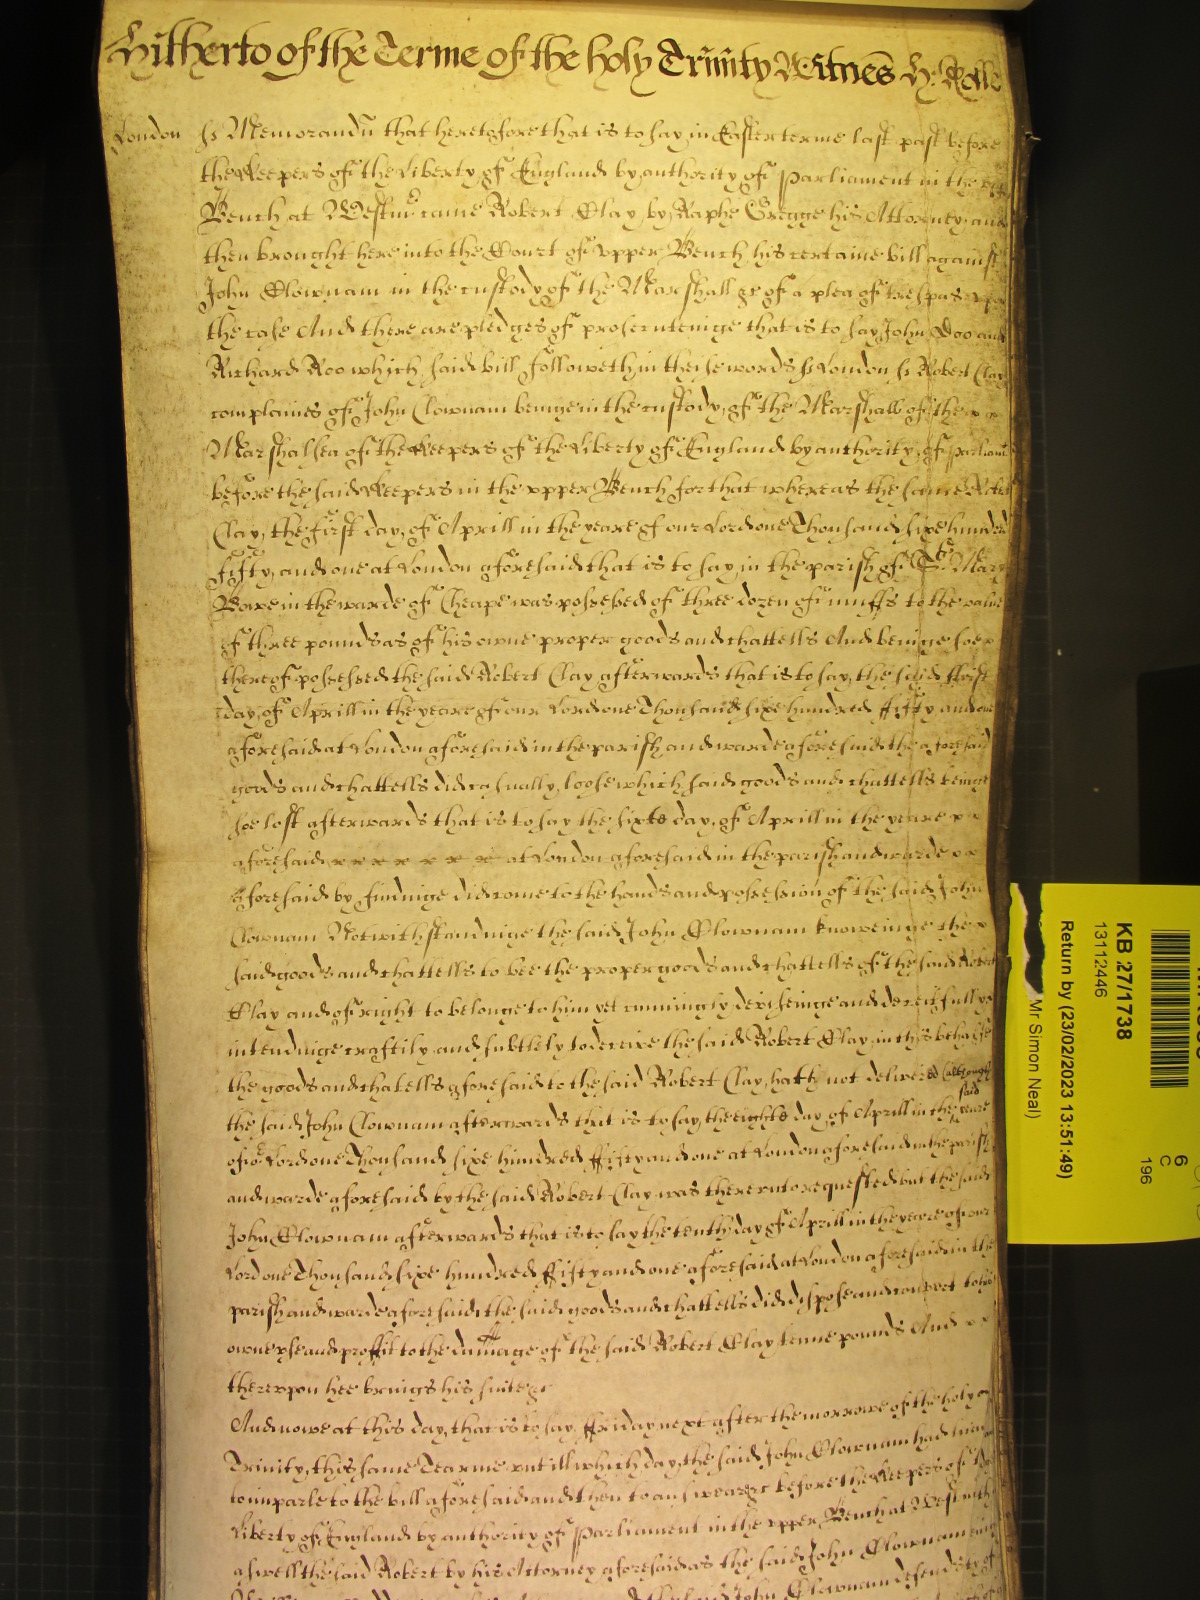 Hitherto of the Terme of the holy Trinity Witnes H: Rolle
London ss Memorandu that heretofore that is to say in Easter terme last past before
the Keepers of the Liberty of England by authority of Parliament in the
Bench at Westmr came Robert Clay by Raphe Gregge his Attorney and
then brought here into the Court of vpper Bench his certaine bill against
John Clownam in the custody of the Marshall &c of a plea of trespas vpon
the case And there are pledges of prosecuteinge that is to say John Doo and
Richard Roo which said bill followeth in theise words ss London ss Robert Clay
complaines of John Clownam beinge in the custody of the Marshall of the
Marshalsea of the Keepers of the Liberty of England by authority of Parliamt
before the said Keepers in the vpper Bench for that whereas the same Robert
Clay the first day of Aprill in the yeare of our Lord one Thousand sixe hundred
fifty and one at London aforesaid that is to say in the parish of St Mary
Bowe in the warde of Cheape was possessed of three dozen of muffs to the value
of three pounds as of his owne proper goods and chattells And beinge soe
thereof possessed the said Robert Clay afterwards that is to say the said first
day of Aprill in the yeare of our Lord one Thousand sixe hundred fifty and one
aforesaid at London aforesaid in the parish and warde aforesaid the aforesaid
goods and chattells did casually loose which said goods and chattells beinge
soe lost afterwards that is to say the sixte day of Aprill in the yeare
aforesaid at London aforesaid in the parish and warde
aforesaid by findinge did come to the hands and possession of the said John
Clownam Notwithstandinge the said John Clownam knoweinge the
said goods and chattells to bee the proper goods and chattells of the said Robert
Clay and of right to belonge to him yet cunningly deviseinge and deceitfully
intendinge craftily and subtlely to deceive the said Robert Clay in this behalfe
the goods and chatells aforesaid to the said Robert Clay hath not delivered (although
the said John Clownam afterwards that is to say the eighte day of Aprill in the said yeare
of or Lord one Thousand sixe hundred fifty and one at London aforesaid in the parish
and warde aforesaid by the said Robert Clay was therevnto requested but the said
John Clownam afterwards that is to say the tenth day of Aprill in the yeare of our
Lord one Thousand sixe hundred fifty and one aforesaid at London aforesaid in the
parish and warde aforesaid the said goods and chattells did dispose and convert to his
owne vse and proffit to the damage of the said Robert Clay tenne pounds And
therevpon hee brings his suite &c
And nowe at this day that is to say ffriday next after the morrowe of the holy
Trinity this same Tearme vntill which day the said John Clownam had
to imparle to the bill aforesaid and then to answeare &c before the Keepers of the
Liberty of England by authority of Parliament in the vpper Bench at Westmr
aswell the said Robert by his Attorney aforesaid as the said John Clownam
the said John Clownam
KB 27/1738
13112446
Return by (23/02/2023 13:51:49)
Mr Simon Neal)
6
C
196